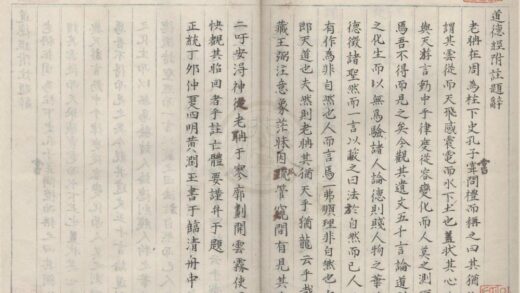 道德經附註題辭
老聃在周為柱下史孔子嘗問禮而稱之曰其猶
謂其雲從而天飛感震電而水下土也蓋狀其心
與天游言動中乎律度從容變化而人莫之測
焉吾不得而見之矣今觀其遺文五千言論道
之化生而以無為驗諸人論德則賤人物之華
德徵諸聖然而一言以蔽之曰法於自然而已人
有作為非自然也人而言焉一弗順理非自然也
即天道也夫然則老聃其猶天乎猶龍云乎哉
藏王弼注意象茫昧自管窺間有見其
二吁安得神老聃于寥廓劃開雲霧使
快覩其胎者乎註亡體要謹弁于題
正統丁夘仲夏四明黃潤玉書于臨清舟中